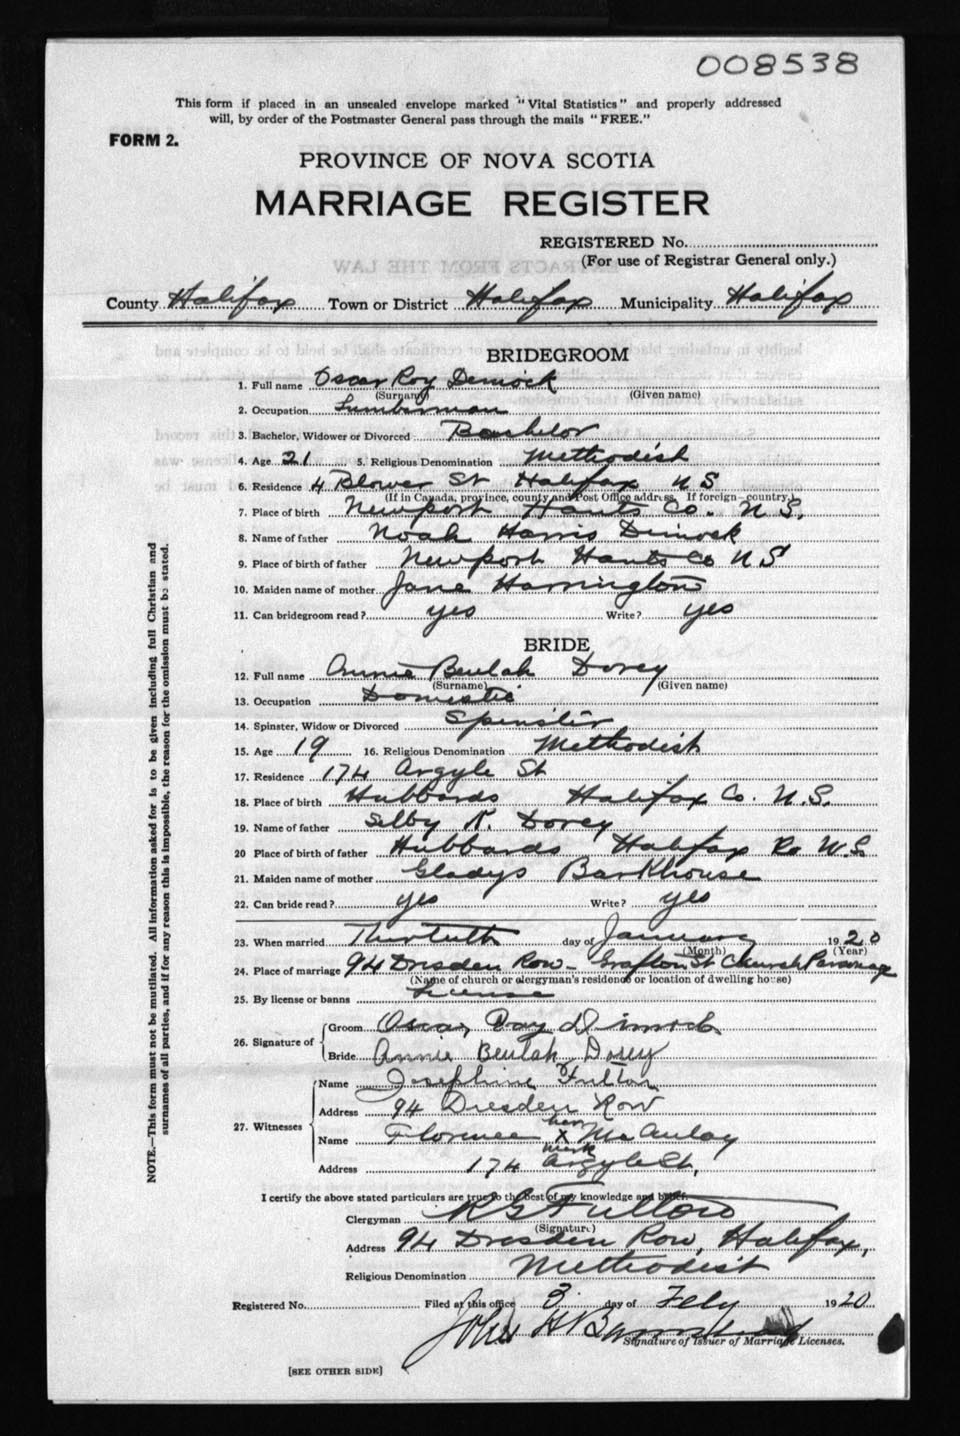 008538
This form if placed in an unsealed envelope marked "Vital Statistics" and properly addressed
will, by order of the Postmaster General pass through the mails "FREE."
FORM 2.
PROVINCE OF NOVA SCOTIA
MARRIAGE REGISTER
REGISTERED No.
(For use of Registrar General only.)
County Halifax Town or District Halifax Municipality Halifax
BRIDEGROOM
1. Full name Oscar Roy Dimock
(Surname) (Given name)
2. Occupation Lumberman
3. Bachelor, Widower or Divorced Bachelor
4. Age 21 5. Religious Denomination Methodist
6. Residence 4 Blower St Halifax N S
(If in Canada, province, county and Post Office address. If foreign—country.)
7. Place of birth Newport Hants Co. N S.
8. Name of father Noah Harris Dimock
9. Place of birth of father Newport Hants Co N S
10. Maiden name of mother Jane Harrington
11. Can bridegroom read? yes Write? yes
BRIDE
12. Full name Annie Beulah Dorey
(Surname) (Given name)
13. Occupation Domestic
14. Spinster, Widow or Divorced Spinster
15. Age 19 16. Religious Denomination Methodist
17. Residence 174 Argyle St
18. Place of birth Hubbards Halifax Co. N.S.
19. Name of father Selby R. Dorey
20 Place of birth of father Hubbards Halifax Co N.S
21. Maiden name of mother Gladys Barkhouse
22. Can bride read? yes Write? yes
23. When married Thirtieth day of January 1920
(Month) (Year)
24. Place of marriage 94 Dresden Row - Grafton St Church Parsonage
(Name of church or clergyman's residence or location of dwelling house)
25. By license or banns License
26. Signature of Groom Oscar Roy Dimock
Bride Annie Beulah Dorey
27. Witnesses Name Josephine Fulton
Address 94 Dresden Row
Name Florence her x mark McAulay
Address 174 Argyle St.
I certify the above stated particulars are true to the best of my knowledge and belief.
Clergyman R G Fulton
(Signature)
Address 94 Dresden Row, Halifax,
Religious Denomination Methodist
Registered No. Filed at this office 3 day of Feby 1920
John H
Signature of Issuer of Marriage Licenses.
[SEE OTHER SIDE]
NOTE.—This form must not be mutilated. All information asked for is to be given including full Christian and
surnames of all parties, and if for any reason this is impossible, the reason for the omission must be stated.